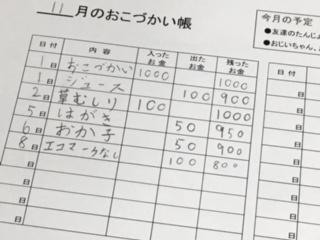 11月のおこづかい帳
日付 内容 入ったお金 出たお金 残ったお金
1日 おこづかい 1000 1000
1日 ジュース 100 900
2日 草むしり 100 1000
5日 はがき 50 950
6日 おか子 50 900
8日 エコマークなし 100 800
日
日
日
日
今月の予定
●友達のたんじょ
●おじいちゃん、
日付
日
日
日
日
日
日
日
日
日